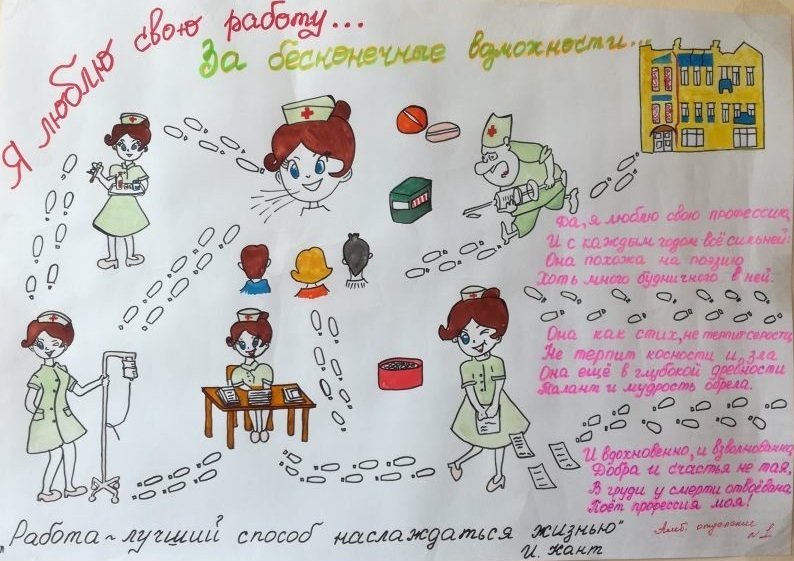 Я люблю свою работу...
За бесконечные возможности...
Да, я люблю свою профессию,
И с каждым годом всё сильней:
Она похожа на поэзию
Хоть много будничного в ней.
Она как стих, не терпит серости,
Не терпит косности и зла
Она ещё в глубокой древности
Талант и мудрость обрела.
И вдохновенно, и взволнованно,
Добра и счастья не тая,
В груди у смерти отвоёвана
Поёт профессия моя!
"Работа - лучший способ наслаждаться жизнью"
И. Кант
Амб. отделение
№1